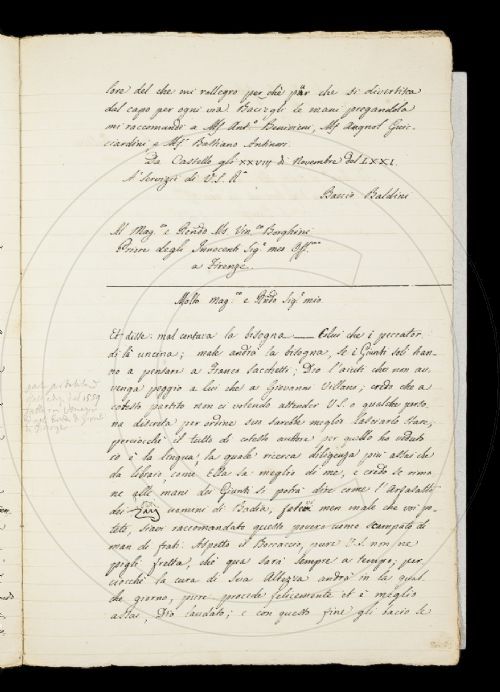 lore del che mi rallegro per chè par che si divertisca
dal capo per ogni via Bacizgli le mani pregandola
mi raccomandi a Mſ. Ant.º Benivieni, Mſ. Angnol Guic-
ciardini, e Mſ. Bastiano Antinori.
Da Castello gli XXVIII di Novembre del LXXI.
A' servizii di V. S. R.ª
Baccio Baldini
Al Mag.co e Rendo Ms. Vin.co Borghini
Priore degli Innocenti Sig.r meo Oss.mo
a Firenze.
Molto Mag.co e Rndo Sig.r mio
Et disse: mal contava la bisogna — Colui che i peccator
di là uncina; male andrà la bisogna, se i Giunti soli han-
no a pensare a Franco Sacchetti; Dio l'aiuti che non av-
venga peggio a lui che a Giovanni Villani; credo che a
cotesto partito non ci volendo attender V. S. o qualche perso-
na discreta per ordine suo sarebbe meglior lasciarlo stare;
perciocchè il tutto di cotesto auttore per quello ho veduto
io è la lingua, la quale ricerca diligenza più assai che
da libraio, come Ella sa meglio di me, e credo se rima-
ne alle mani dei Giunti si potrà dire come l'Arfasatto
dei uomini di Badia, fate men male che voi po-
tete, siavi raccomandato questo povero uomo scampato di
man di frati. Aspetto il Boccaccio, pure V. S. non ne
pigli fretta, chè qua sarà sempre a tempo, per-
ciocchè la cura di Sua Altezza andrà in là qual-
che giorno, pure procede felicemente et è meglio
assai, Dio laudato; e con questo fine gli bacio le